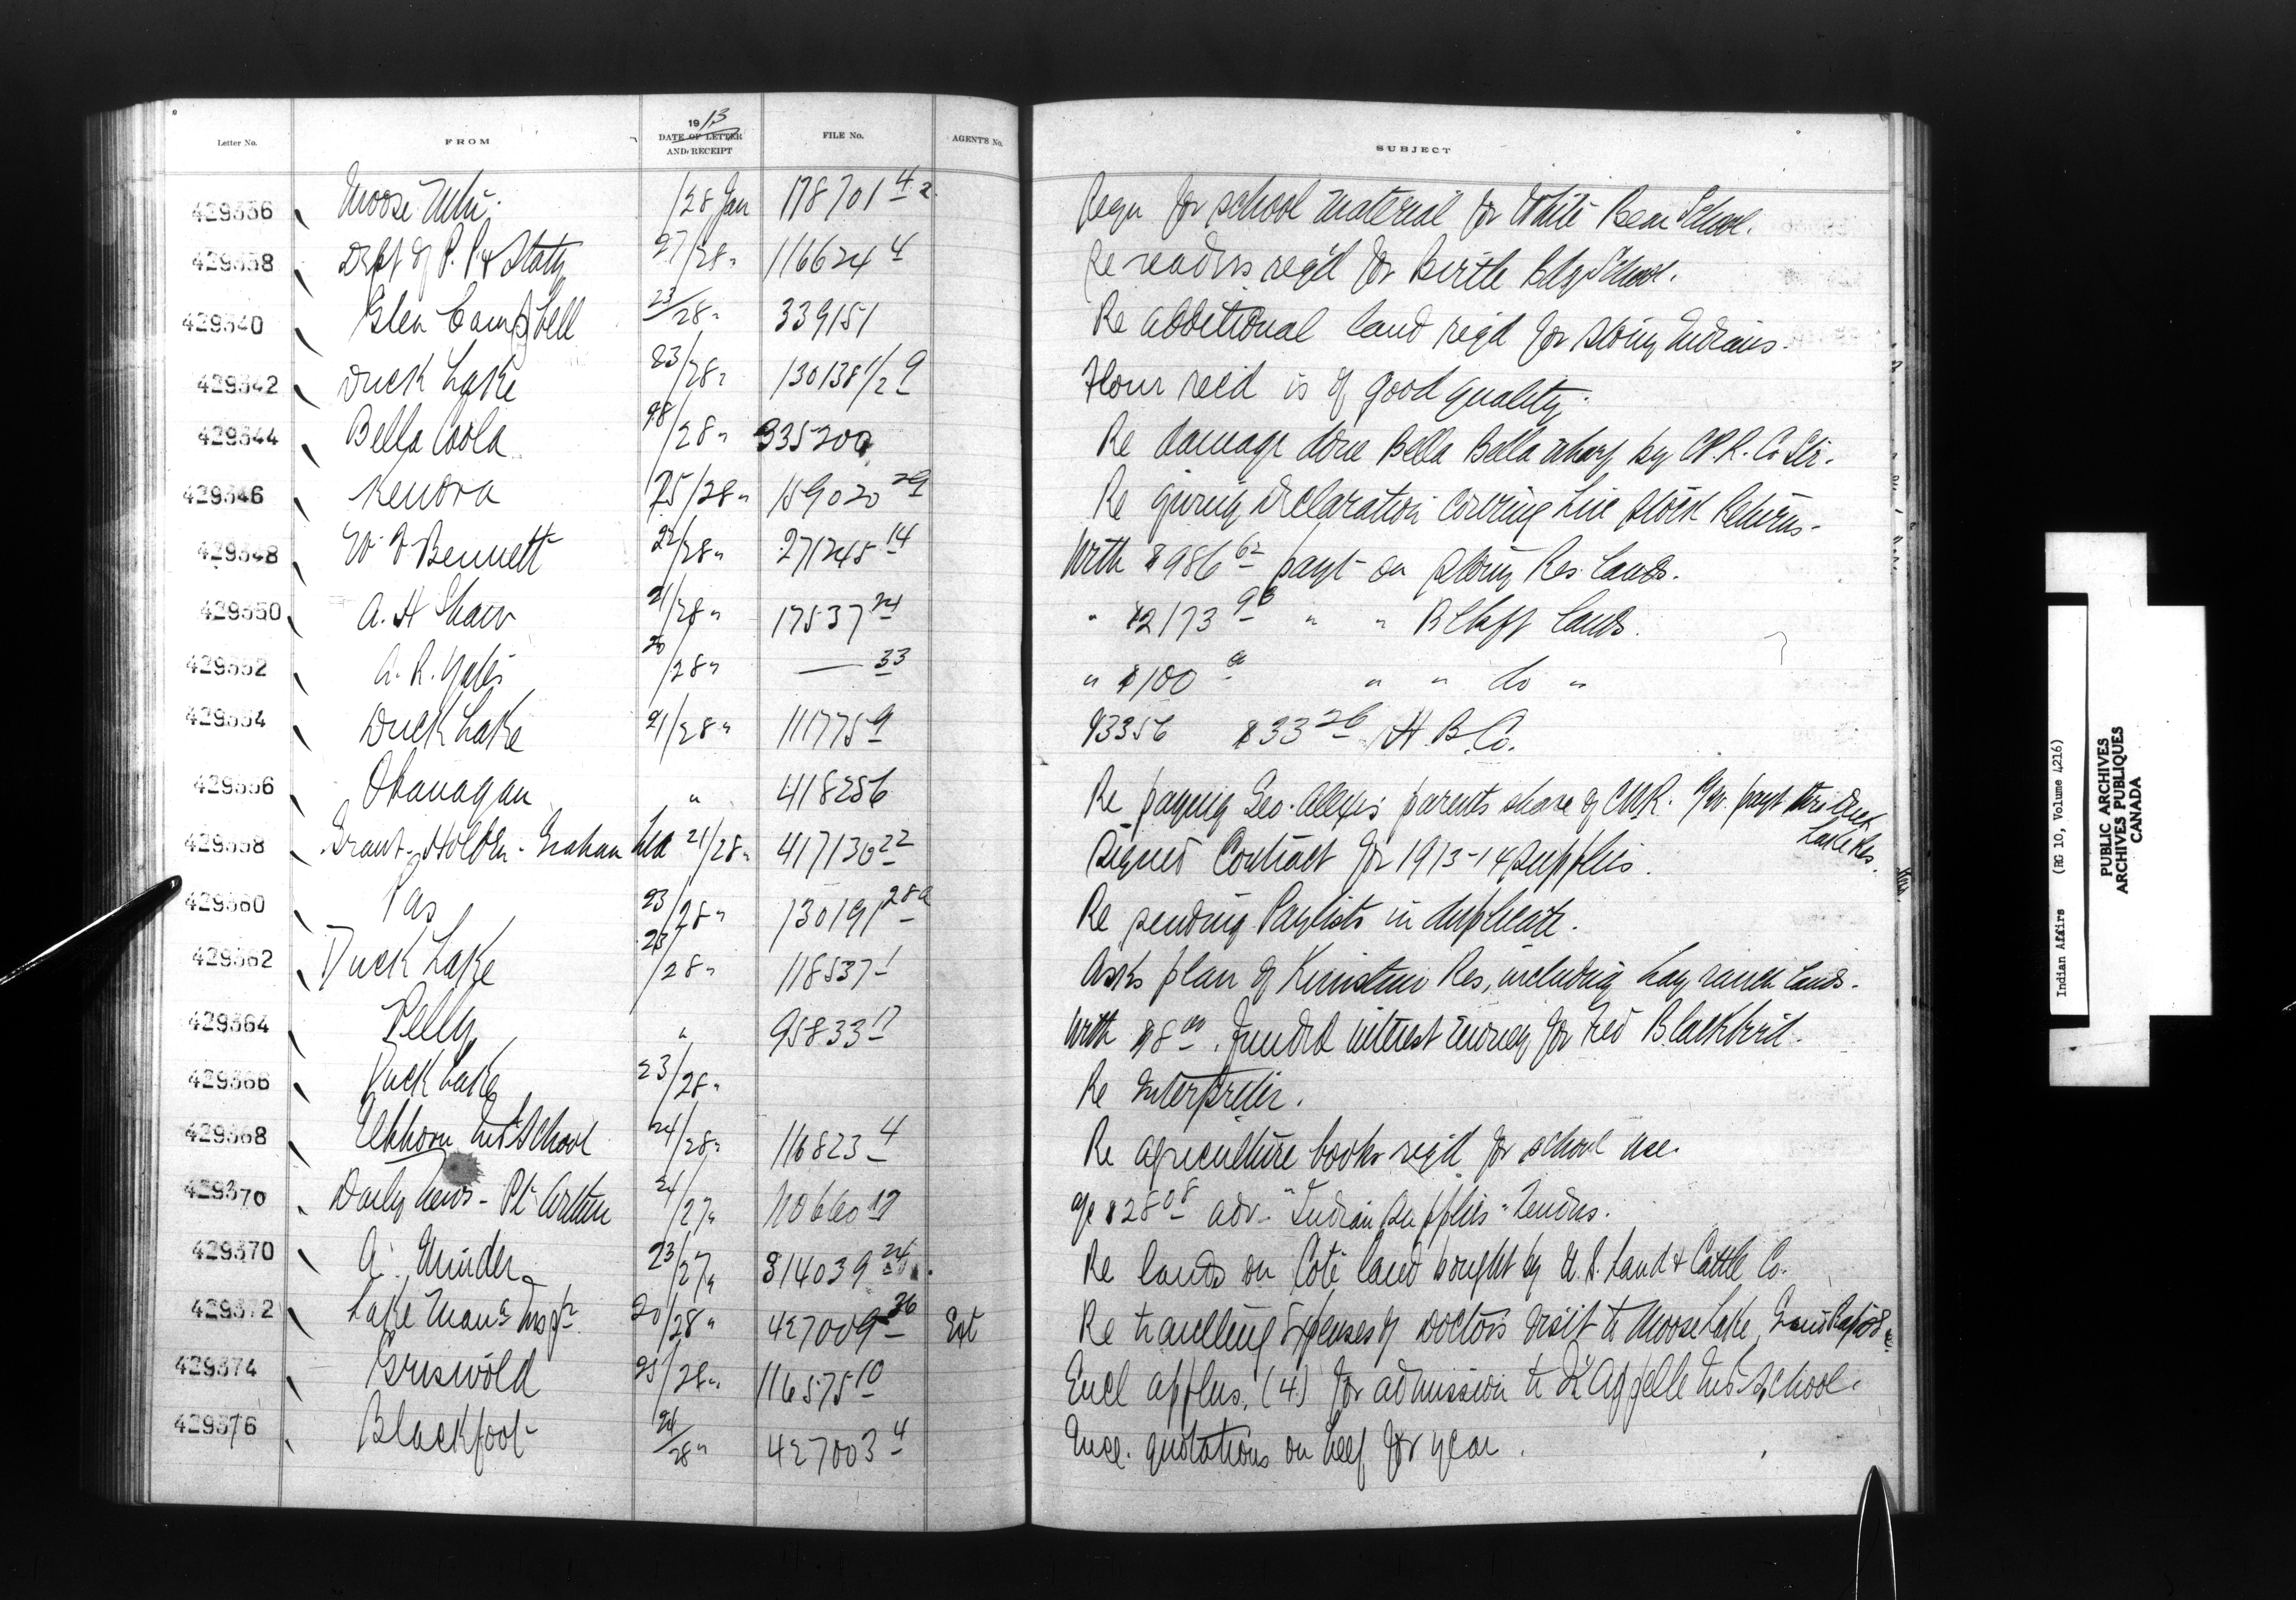 Letter No. FROM 1913 DATE OF LETTER AND RECEIPT FILE No. AGENT'S No. SUBJECT
429336 Moose Mtn. /28 Jan 118701 4 2 Reqn for school material for White Bear School.
429338 Dept of P. P & Staty 27/28 " 116624 4 Re readers req'd for Birtle Bdg School.
429340 Glen Campbell 23/28 " 339151 Re additional land req'd for Stony Indians.
429342 Duck Lake 23/28 " 130138 1/2 9 Flour recd is of good quality.
429344 Bella Coola /28 " 335200 Re damage done Bella Bella wharf by C.P.R. Co Str.
429346 Kenora 25/28 " 159020 29 Re giving declaration covering Live Stock Returns.
429348 Bennett 22/28 " 271245 14 With $986 62 payt on Stony Res. Lands.
429350 A. H Shaw 21/28 " 17537 24 " $2173 98 " " Blkft lands.
429352 A. R. Yates 20/28 " — 33 " $100 " " do "
429354 Duck Lake 21/28 " 111775 9 93356 $33 26 H. B. Co.
429356 Okanagan " 418256 Re paying Geo. Alexis parents share of C.N.R. payt Duck Lake Res.
429358 Grant - Holden - Graham Ltd 21/28 " 417130 22 Signed Contract for 1913-14 supplies.
429360 Pas 23/28 " 130191 28a Re sending Paylists in duplicate.
429362 Duck Lake 23/28 " 118537 1 Asks plan of Kinistino Res, including hay lands.
429364 Pelly " 95833 17 With $8 00 funded interest money for Fred Blackbird.
429366 Duck Lake 23/28 " Re Interpreter.
429368 Elkhorn Ind School 24/28 " 116823 4 Re agriculture books req'd for school use.
429370 Daily News - Pt Arthur 24/27 " 110660 19 a/c $28 08 adv - "Indian Supplies" Tenders.
429370 A. Minder 23/27 " 314039 24 Re lands on Coté land bought by U. S. Land & Cattle Co.
429372 Lake Man: Insp 20/28 " 427009 36 Ext Re travelling Expenses of Doctors visit to Moose Lake, Grand Rapids
429374 Griswold 25/28 " 116575 10 Encl applns. (4) for admission to Qu'Appelle Ind School.
429376 Blackfoot 24/28 " 427003 4 Encl. quotations on beef for year.
Indian Affairs (RG 10, Volume 4216)
PUBLIC ARCHIVES
ARCHIVES PUBLIQUES
CANADA